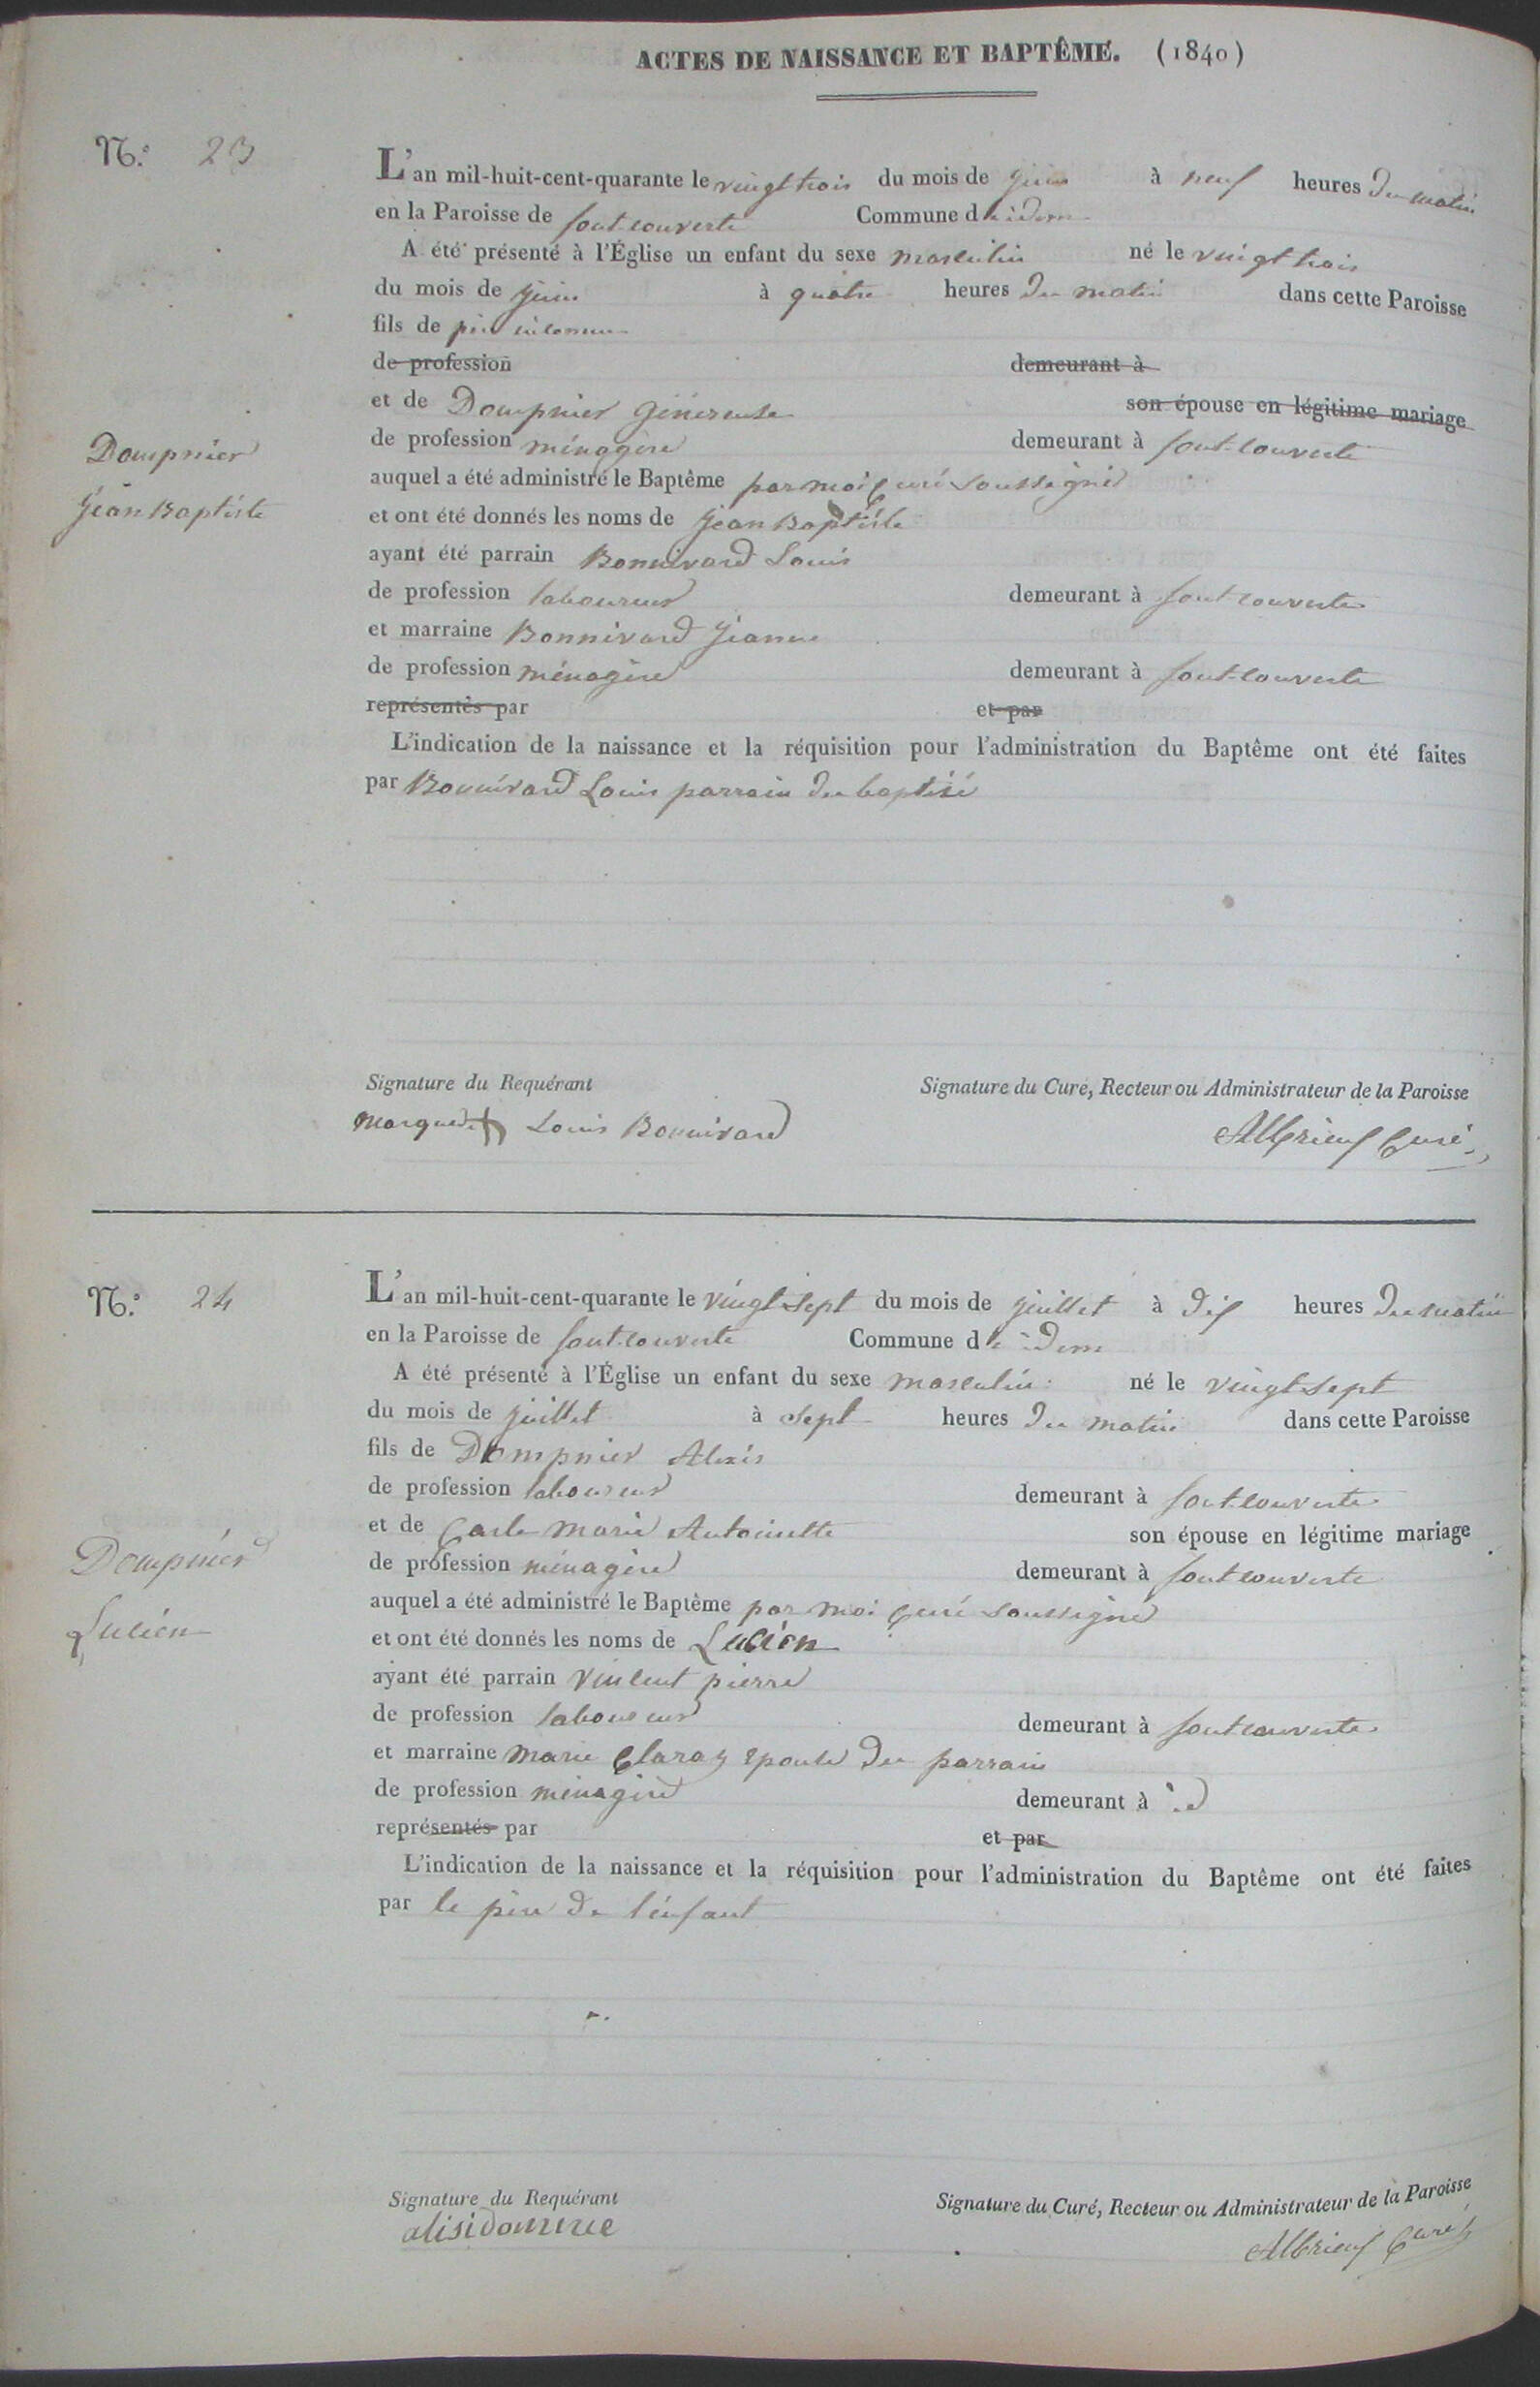 ACTES DE NAISSANCE ET BAPTÊME. (1840)
N.° 23
L'an mil-huit-cent-quarante le vingt trois du mois de juin à neuf heures du matin
en la Paroisse de font-couverte Commune de idem
A été présenté à l'Église un enfant du sexe masculin né le vingt trois
du mois de juin à quatre heures du matin dans cette Paroisse
fils de père inconnu
de profession demeurant à
et de Dompnier Généreuse son épouse en légitime mariage
de profession ménagère demeurant à font-couverte
Dompnier
Jean Baptiste
auquel a été administré le Baptême par moi Curé soussigné
et ont été donnés les noms de Jean Baptiste
ayant été parrain Bonnivard Louis
de profession laboureur demeurant à font couverte
et marraine Bonnivard Jeanne
de profession ménagère demeurant à font-couverte
représentés par et par
L'indication de la naissance et la réquisition pour l'administration du Baptême ont été faites
par Bonnivard Louis parrain du baptisé
Signature du Requérant Signature du Curé, Recteur ou Administrateur de la Paroisse
marque de Louis Bonnivard Albrieux Curé
N.° 24
L'an mil-huit-cent-quarante le vingt sept du mois de juillet à dix heures du matin
en la Paroisse de font-couverte Commune de idem
A été présenté à l'Église un enfant du sexe masculin né le vingt sept
du mois de juillet à sept heures du matin dans cette Paroisse
fils de Dompnier Alexis
de profession laboureur demeurant à font couverte
et de Carle Marie Antoinette son épouse en légitime mariage
de profession ménagère demeurant à font couverte
Dompnier
Lucien
auquel a été administré le Baptême par moi Curé soussigné
et ont été donnés les noms de Lucien
ayant été parrain Vincent pierre
de profession laboureur demeurant à font couverte
et marraine Marie Claraz épouse du parrain
de profession ménagère demeurant à id
représentés par et par
L'indication de la naissance et la réquisition pour l'administration du Baptême ont été faites
par le père de l'enfant
Signature du Requérant Signature du Curé, Recteur ou Administrateur de la Paroisse
Albrieux Curé